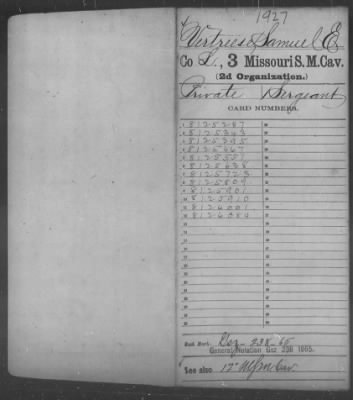 1927
Vertrees Samuel E
Co L., 3 Missouri S. M. Cav.
(2d Organization.)
Private Sergeant
CARD NUMBERS.
8125247
8125343
8125395
8125467
8125551
8125638
8125723
8125809
8125901
8125910
8126001
8126384
Book Mark: Gaz 238-65
General Notation Gaz 238 1865.
See also